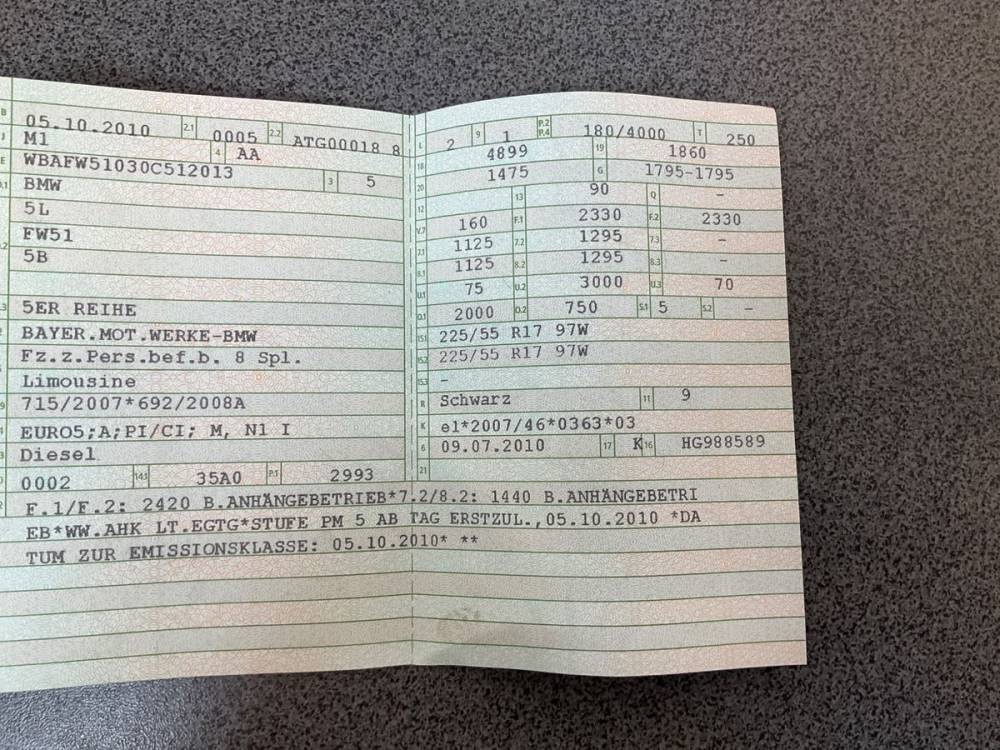 B 05.10.2010 2.1 0005 2.2 ATG00018 8
J M1 4 AA
E WBAFW51030C512013 3 5
D.1 BMW
5L
D.2 FW51
5B
D.3 5ER REIHE
2 BAYER.MOT.WERKE-BMW
5 Fz.z.Pers.bef.b. 8 Spl.
Limousine
V.9 715/2007*692/2008A
14 EURO5;A;PI/CI; M, N1 I
P.3 Diesel
10 0002 14.1 35A0 P.1 2993
L 2 9 1 P.2 P.4 180/4000 T 250
18 4899 19 1860
20 1475 G 1795-1795
12 13 90 Q –
V.7 160 F.1 2330 F.2 2330
7.1 1125 7.2 1295 7.3 –
8.1 1125 8.2 1295 8.3 –
U.1 75 U.2 3000 U.3 70
O.1 2000 O.2 750 S.1 5 S.2 –
15.1 225/55 R17 97W
15.2 225/55 R17 97W
15.3 –
R Schwarz 11 9
K e1*2007/46*0363*03
6 09.07.2010 17 K 16 HG988589
21
22 F.1/F.2: 2420 B.ANHÄNGEBETRIEB*7.2/8.2: 1440 B.ANHÄNGEBETRI
EB*WW.AHK LT.EGTG*STUFE PM 5 AB TAG ERSTZUL.,05.10.2010 *DA
TUM ZUR EMISSIONSKLASSE: 05.10.2010* **